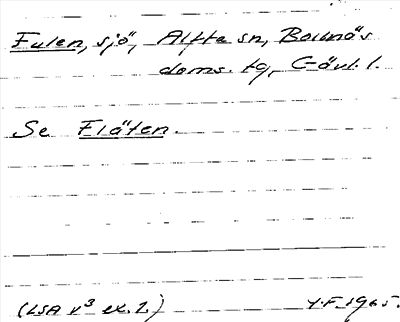 Eulen, sjö, Alfta sn, Bollnäs
doms. tg, Gävl. l.
Se Fläten.
(LSA v³ ex. 2.) Y.F. 1965.